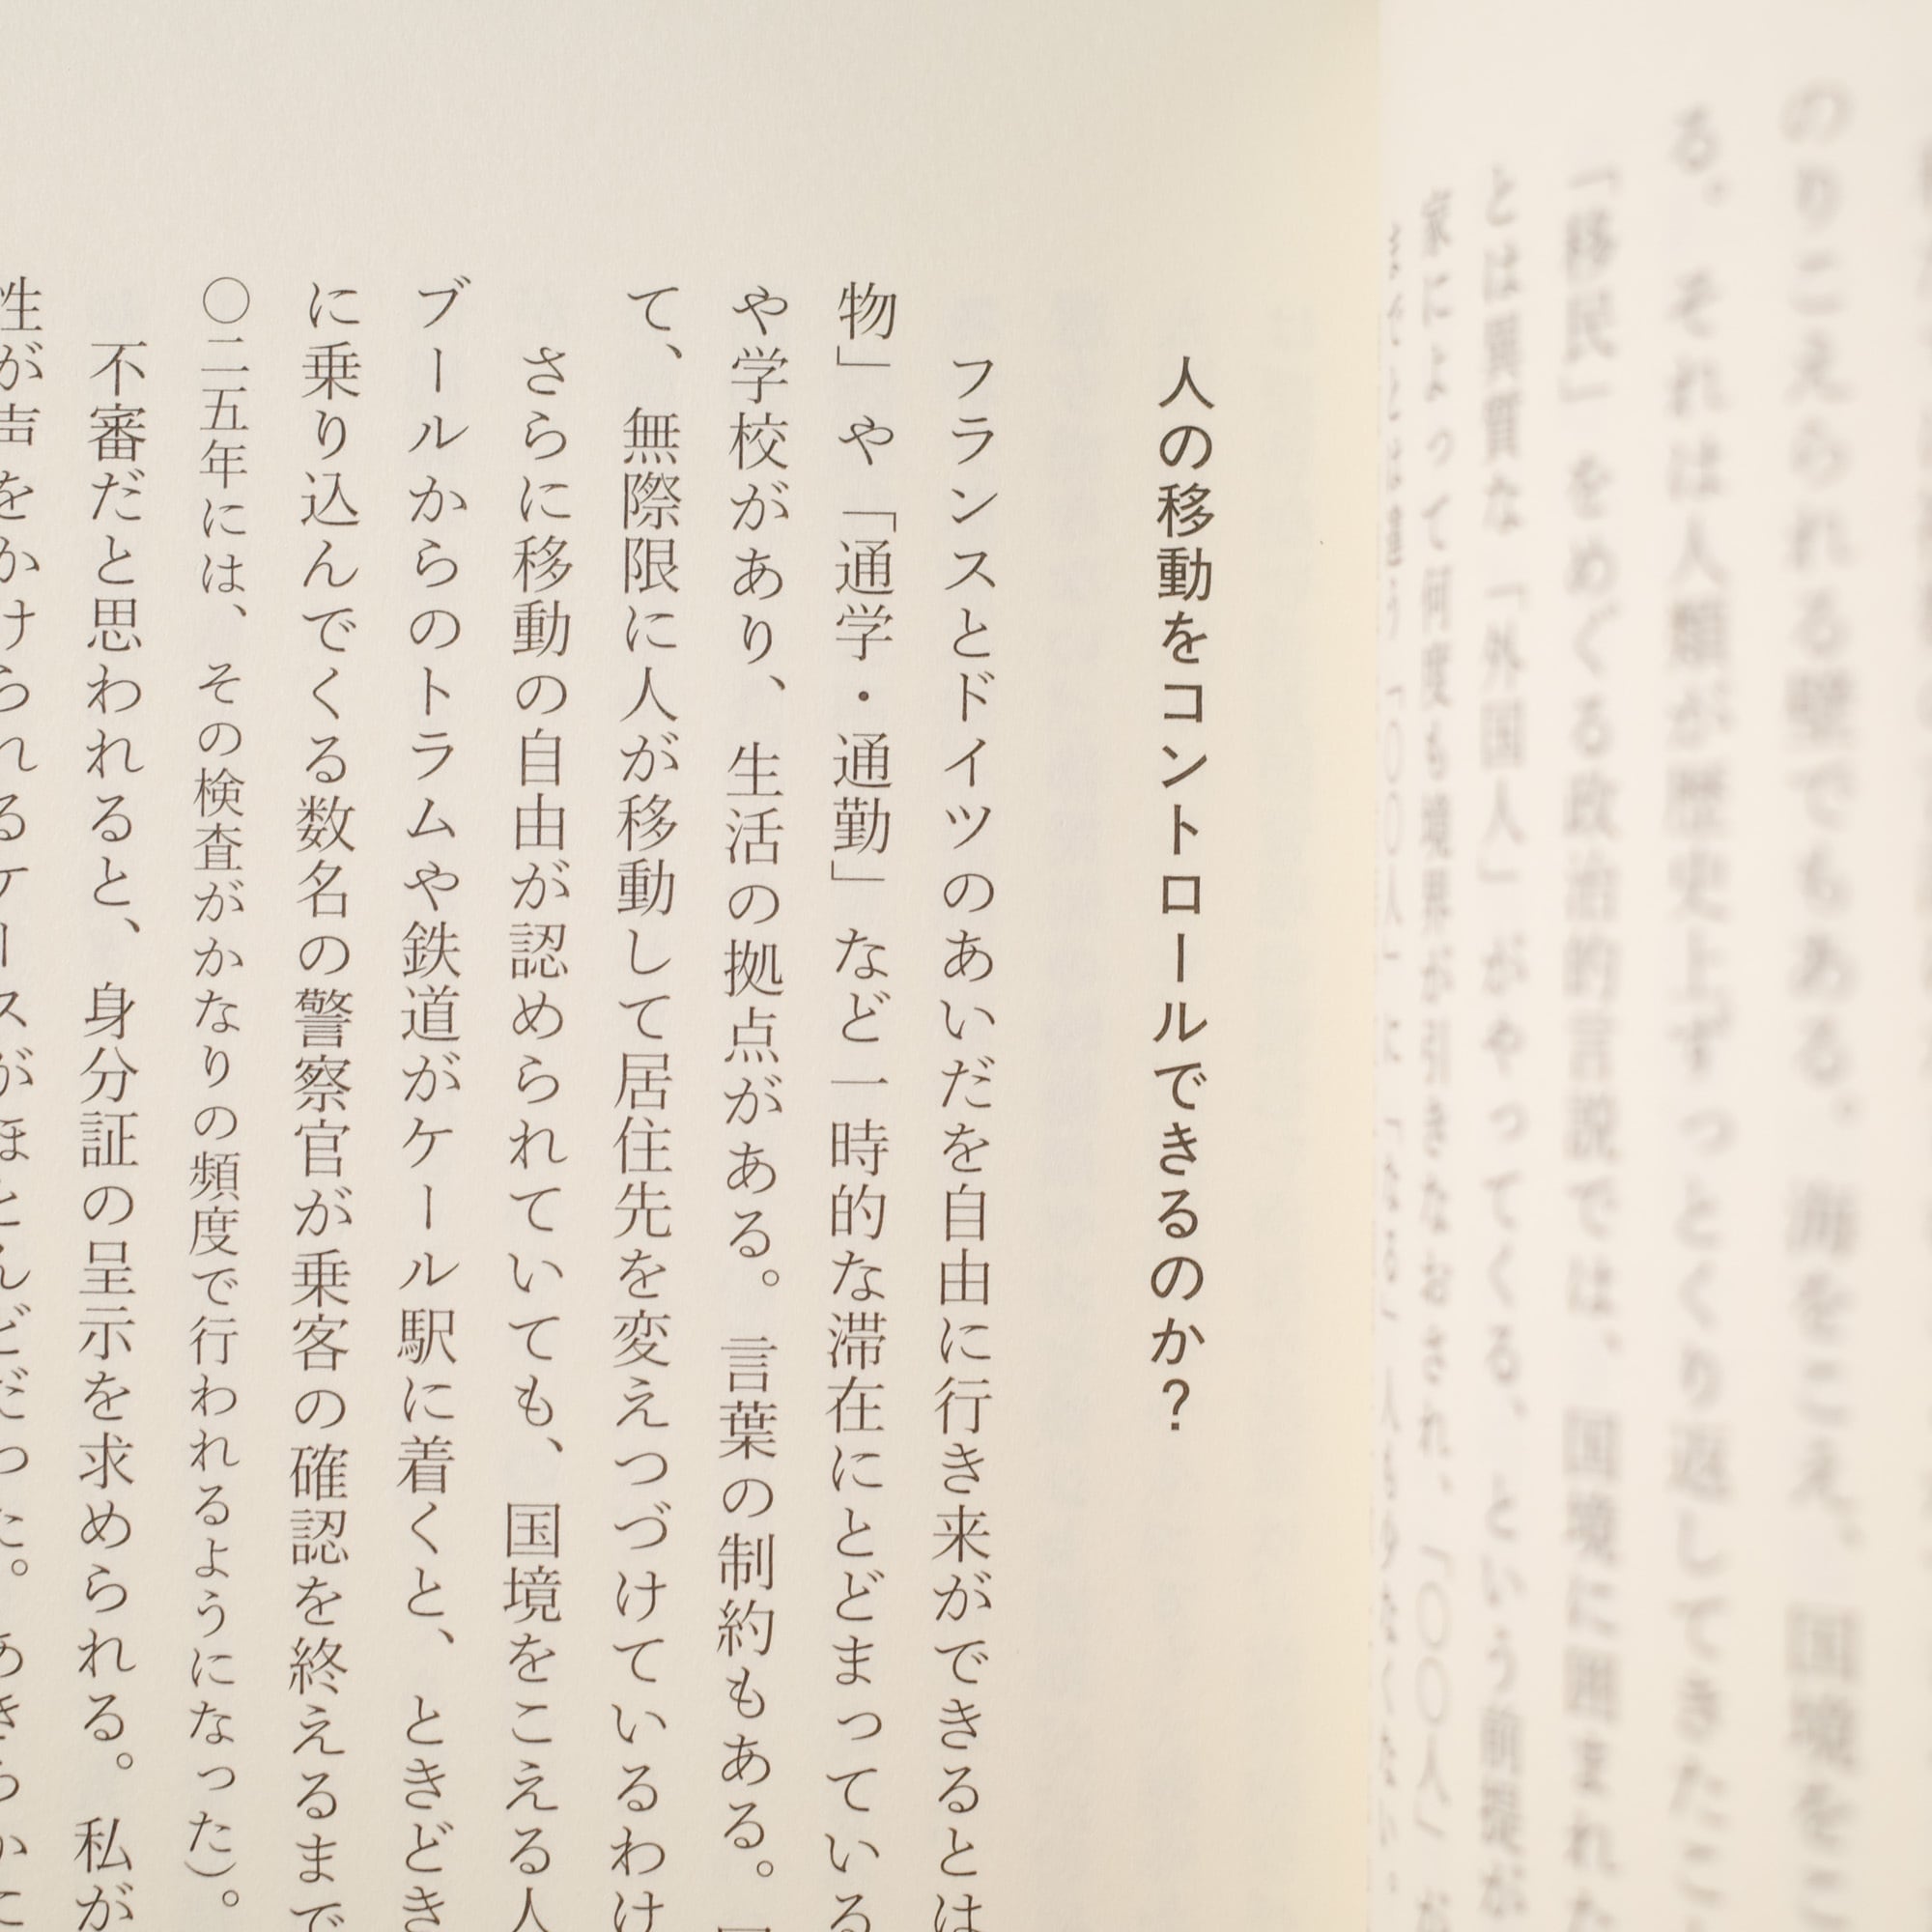 のりこえられる壁でもある。海をこえ、国境をこ
る。それは人類が歴史上ずっとくり返してきたこ
「移民」をめぐる政治的言説では、国境に囲まれた
とは異質な「外国人」がやってくる、という前提が
家によって何度も境界が引きなおされ、「〇〇人」
人の移動をコントロールできるのか？
フランスとドイツのあいだを自由に行き来ができるとは
物」や「通学・通勤」など一時的な滞在にとどまっている
や学校があり、生活の拠点がある。言葉の制約もある。
て、無際限に人が移動して居住先を変えつづけているわけ
さらに移動の自由が認められていても、国境をこえる人
ブールからのトラムや鉄道がケール駅に着くと、ときどき
に乗り込んでくる数名の警察官が乗客の確認を終えるまで
〇二五年には、その検査がかなりの頻度で行われるようになった）。
不審だと思われると、身分証の呈示を求められる。私が
性が声をかけられるケースがほとんどだった。あきらかに